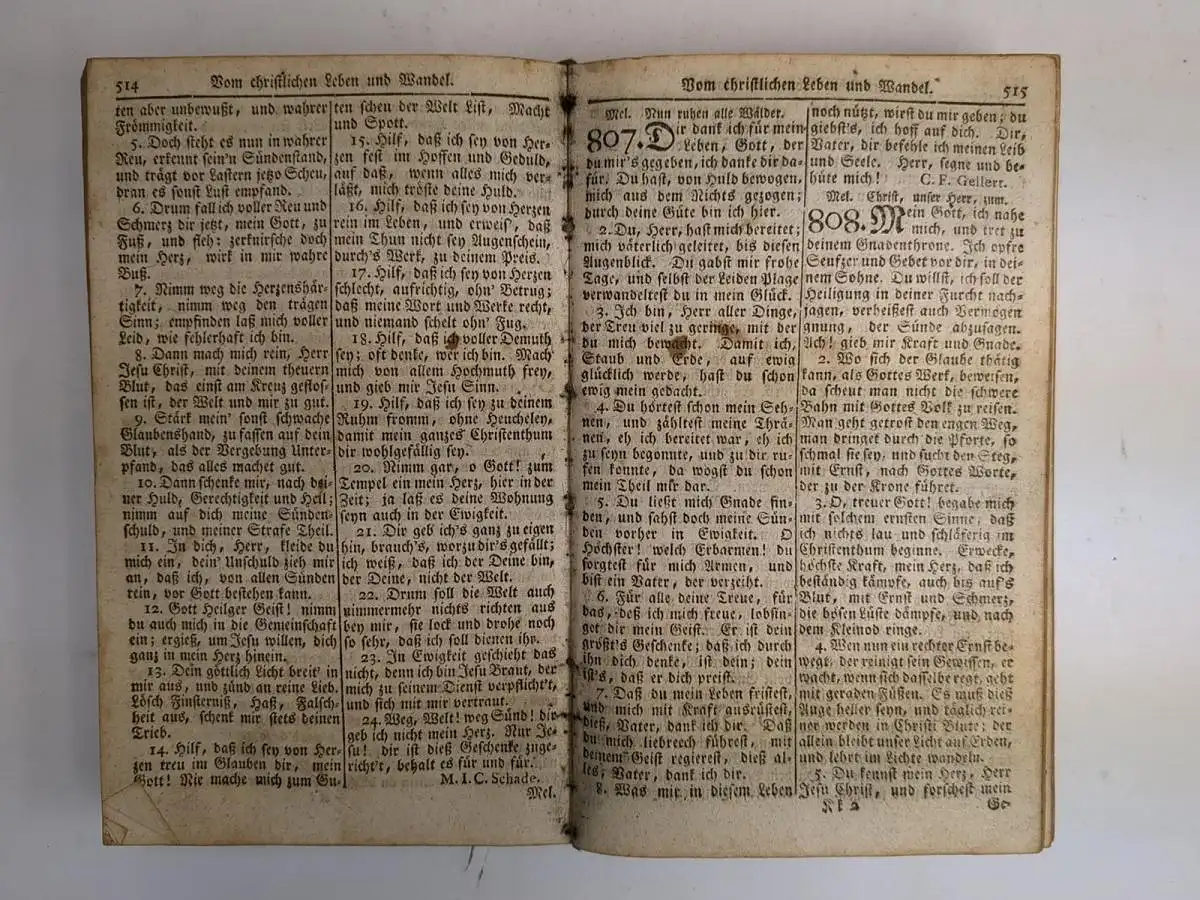 514
Vom christlichen Leben und Wandel.
ten aber unbewußt, und wahrer
Frömmigkeit.
5. Doch steht es nun in wahrer
Reu, erkennt sein'n Sündenstand,
und trägt vor Lastern jetzo Scheu,
dran es sonst Lust empfand.
6. Drum fall ich voller Reu und
Schmerz dir jetzt, mein Gott, zu
Fuß, und fleh: zerknirsche doch
mein Herz, wirk in mir wahre
Buß.
7. Nimm weg die Herzenshär-
tigkeit, nimm weg den trägen
Sinn; empfinden laß mich voller
Leid, wie fehlerhaft ich bin.
8. Dann mach mich rein, Herr
Jesu Christ, mit deinem theuern
Blut, das einst am Kreuz geflos-
sen ist, der Welt und mir zu gut.
9. Stärk mein' sonst schwache
Glaubenshand, zu fassen auf dein
Blut, als der Vergebung Unter-
pfand, das alles machet gut.
10. Dann schenke mir, nach dei-
ner Huld, Gerechtigkeit und Heil;
nimm auf dich meine Sünden-
schuld, und meiner Strafe Theil.
11. In dich, Herr, kleide du
mich ein, dein' Unschuld zieh mir
an, daß ich, von allen Sünden
rein, vor Gott bestehen kann.
12. Gott Heilger Geist! nimm
du auch mich in die Gemeinschaft
ein; ergieß, um Jesu willen, dich
ganz in mein Herz hinein.
13. Dein göttlich Licht breit' in
mir aus, und zünd an reine Lieb.
Lösch Finsterniß, Haß, Falsch-
heit aus, schenk mir stets deinen
Trieb.
14. Hilf, daß ich sey von Her-
zen treu im Glauben dir, mein
Gott! Nie mache mich zum Gu-
ten scheu der Welt List, Macht
und Spott.
15. Hilf, daß ich sey von Her-
zen fest im Hoffen und Geduld,
auf daß, wenn alles mich ver-
läßt, mich tröste deine Huld.
16. Hilf, daß ich sey von Herzen
rein im Leben, und erweis', daß
mein Thun nicht sey Augenschein,
durch's Werk, zu deinem Preis.
17. Hilf, daß ich sey von Herzen
schlecht, aufrichtig, ohn' Betrug;
daß meine Wort und Werke recht,
und niemand schelt ohn' Fug.
18. Hilf, daß ich voller Demuth
sey; oft denke, wer ich bin. Mach'
mich von allem Hochmuth frey,
und gieb mir Jesu Sinn.
19. Hilf, daß ich sey zu deinem
Ruhm fromm, ohne Heucheley,
damit mein ganzes Christenthum
dir wohlgefällig sey.
20. Nimm gar, o Gott! zum
Tempel ein mein Herz, hier in der
Zeit; ja laß es deine Wohnung
seyn auch in der Ewigkeit.
21. Dir geb ich's ganz zu eigen
hin, brauch's, worzu dir's gefällt;
ich weiß, daß ich der Deine bin,
der Deine, nicht der Welt.
22. Drum soll die Welt auch
nimmermehr nichts richten aus
bey mir, sie lock und drohe noch
so sehr, daß ich soll dienen ihr.
23. In Ewigkeit geschieht das
nicht, denn ich bin Jesu Braut, der
mich zu seinem Dienst verpflicht't,
und sich mit mir vertraut.
24. Weg, Welt! weg Sünd! dir
geb ich nicht mein Herz. Nur Je-
su! dir ist dieß Geschenke zuge-
richt't, behalt es für und für.
M. I. C. Schade.
Mel.
Vom christlichen Leben und Wandel.
515
Mel. Nun ruhen alle Wälder.
807. Dir dank ich für mein
Leben, Gott, der
du mir's gegeben, ich danke dir da-
für. Du hast, von Huld bewogen,
mich aus dem Nichts gezogen;
durch deine Güte bin ich hier.
2. Du, Herr, hast mich bereitet;
mich väterlich geleitet, bis diesen
Augenblick. Du gabst mir frohe
Tage, und selbst der Leiden Plage
verwandeltest du in mein Glück.
3. Ich bin, Herr aller Dinge,
der Treu viel zu geringe, mit der
du mich bewacht. Damit ich,
Staub und Erde, auf ewig
glücklich werde, hast du schon
ewig mein gedacht.
4. Du hörtest schon mein Seh-
nen, und zähltest meine Thrä-
nen, eh ich bereitet war, eh ich
zu seyn begonnte, und zu dir ru-
fen konnte, da wogst du schon
mein Theil mir dar.
5. Du ließt mich Gnade fin-
den, und sahst doch meine Sün-
den vorher in Ewigkeit. O
Höchster! welch Erbarmen! du
sorgtest für mich Armen, und
bist ein Vater, der verzeiht.
6. Für alle deine Treue, für
das, deß ich mich freue, lobsin-
get dir mein Geist. Er ist dein
größt's Geschenke; daß ich durch
ihn dich denke, ist dein; dein
ist's, daß er dich preist.
7. Daß du mein Leben fristest,
und mich mit Kraft ausrüstest,
dieß, Vater, dank ich dir. Daß
du mich liebreich führest, mit
deinem Geist regierest, dieß al-
les, Vater, dank ich dir.
8. Was mir in diesem Leben
noch nützt, wirst du mir geben; du
giebst's, ich hoff auf dich. Dir,
Vater, dir befehle ich meinen Leib
und Seele. Herr, segne und be-
hüte mich! C. F. Gellert.
Mel. Christ, unser Herr, zum.
808. Mein Gott, ich nahe
mich, und tret zu
deinem Gnadenthrone. Ich opfre
Seufzer und Gebet vor dir, in dei-
nem Sohne. Du willst, ich soll der
Heiligung in deiner Furcht nach-
jagen, verheißest auch Vermögen
gnung, der Sünde abzusagen.
Ach! gieb mir Kraft und Gnade.
2. Wo sich der Glaube thätig
kann, als Gottes Werk, beweisen,
da scheut man nicht die schwere
Bahn mit Gottes Volk zu reisen.
Man geht getrost den engen Weg,
man dringet durch die Pforte, so
schmal sie sey, und sucht den Steg,
mit Ernst, nach Gottes Worte,
der zu der Krone führet.
3. O, treuer Gott! begabe mich
mit solchem ernsten Sinne, daß
ich nichts lau und schläferig im
Christenthum beginne. Erwecke,
höchste Kraft, mein Herz, daß ich
beständig kämpfe, auch bis auf's
Blut, mit Ernst und Schmerz,
die bösen Lüste dämpfe, und nach
dem Kleinod ringe.
4. Wen nun ein rechter Ernst be-
wegt, der reinigt sein Gewissen, er
wacht, wenn sich dasselbe regt, geht
mit geraden Füßen. Es muß dieß
Auge heller seyn, und täglich rei-
ner werden in Christi Blute; der
allein bleibt unser Licht auf Erden,
und lehrt im Lichte wandeln.
5. Du kennst mein Herz, Herr
Jesu Christ, und forschest mein
Kk 2
Ge-